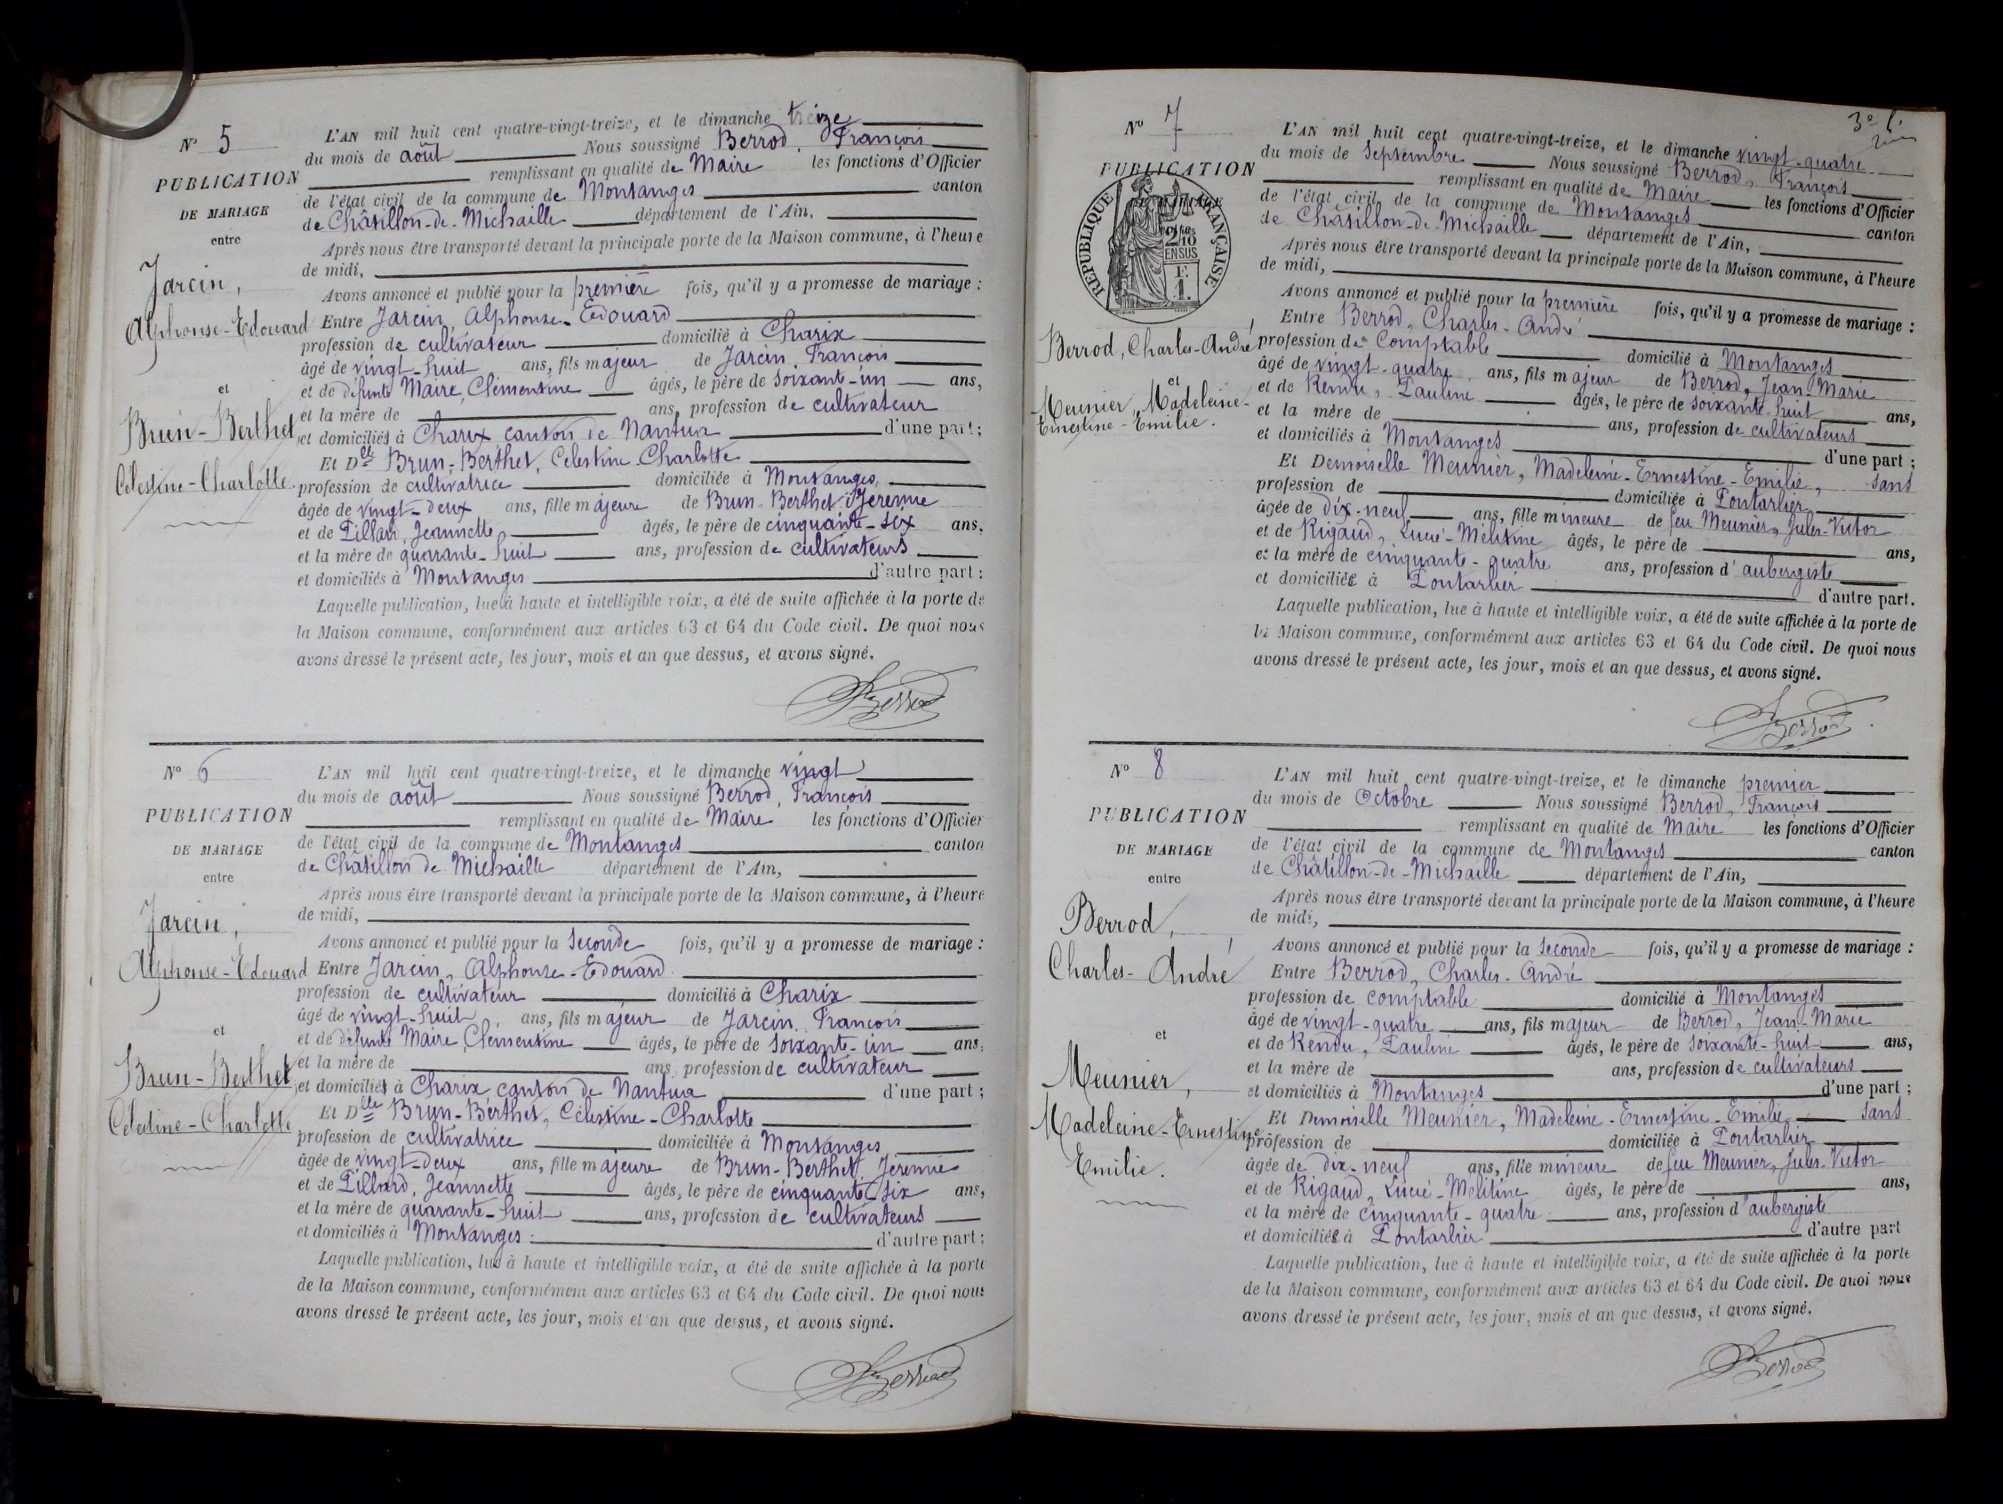 N° 5
PUBLICATION
DE MARIAGE
entre
Jarcin,
Alphonse-Edouard
et
Brun-Berthet
Célestine-Charlotte.
L'AN mil huit cent quatre-vingt-treize, et le dimanche treize
du mois de août Nous soussigné Berrod, François
remplissant en qualité de Maire les fonctions d'Officier
de l'état civil de la commune de Montanges canton
de Châtillon-de-Michaille département de l'Ain,
Après nous être transporté devant la principale porte de la Maison commune, à l'heure
de midi,
Avons annoncé et publié pour la première fois, qu'il y a promesse de mariage :
Entre Jarcin, Alphonse-Edouard
profession de cultivateur domicilié à Charix
âgé de vingt-huit ans, fils majeur de Jarcin, François
et de défunte Maire, Clémentine âgés, le père de soixante-un ans,
et la mère de ans, profession de cultivateur
et domiciliés à Charix canton de Nantua d'une part ;
Et Delle Brun-Berthet, Célestine-Charlotte
profession de cultivatrice domiciliée à Montanges,
âgée de vingt-deux ans, fille majeure de Brun-Berthet Jérémie
et de Pillard, Jeannette âgés, le père de cinquante-six ans,
et la mère de quarante-huit ans, profession de cultivateurs
et domiciliés à Montanges d'autre part ;
Laquelle publication, lue à haute et intelligible voix, a été de suite affichée à la porte de
la Maison commune, conformément aux articles 63 et 64 du Code civil. De quoi nous
avons dressé le présent acte, les jour, mois et an que dessus, et avons signé.
Berrod
N° 6
PUBLICATION
DE MARIAGE
entre
Jarcin,
Alphonse-Edouard
et
Brun-Berthet
Célestine-Charlotte
L'AN mil huit cent quatre-vingt-treize, et le dimanche vingt
du mois de août Nous soussigné Berrod, François
remplissant en qualité de Maire les fonctions d'Officier
de l'état civil de la commune de Montanges canton
de Châtillon de Michaille département de l'Ain,
Après nous être transporté devant la principale porte de la Maison commune, à l'heure
de midi,
Avons annoncé et publié pour la seconde fois, qu'il y a promesse de mariage :
Entre Jarcin, Alphonse-Edouard
profession de cultivateur domicilié à Charix
âgé de vingt-huit, ans, fils majeur de Jarcin, François
et de défunte Maire, Clémentine âgés, le père de soixante-un ans,
et la mère de ans, profession de cultivateur
et domiciliés à Charix, canton de Nantua d'une part ;
Et Delle Brun-Berthet, Célestine-Charlotte
profession de cultivatrice domiciliée à Montanges
âgée de vingt-deux ans, fille majeure de Brun-Berthet Jérémie
et de Pillard, Jeannette âgés, le père de cinquante-six ans,
et la mère de quarante-huit ans, profession de cultivateurs
et domiciliés à Montanges d'autre part ;
Laquelle publication, lue à haute et intelligible voix, a été de suite affichée à la porte
de la Maison commune, conformément aux articles 63 et 64 du Code civil. De quoi nous
avons dressé le présent acte, les jour, mois et an que dessus, et avons signé.
Berrod
3e f.
N° 7
PUBLICATION
RÉPUBLIQUE FRANÇAISE
2/10 EN SUS
Berrod, Charles-André
et
Meunier, Madeleine-
Ernestine-Emilie.
L'AN mil huit cent quatre-vingt-treize, et le dimanche vingt-quatre
du mois de Septembre Nous soussigné Berrod, François
remplissant en qualité de Maire les fonctions d'Officier
de l'état civil de la commune de Montanges canton
de Châtillon-de-Michaille département de l'Ain,
Après nous être transporté devant la principale porte de la Maison commune, à l'heure
de midi,
Avons annoncé et publié pour la première fois, qu'il y a promesse de mariage :
Entre Berrod, Charles-André
profession de Comptable domicilié à Montanges
âgé de vingt-quatre ans, fils majeur de Berrod, Jean-Marie
et de Rendu, Pauline âgés, le père de soixante-huit ans,
et la mère de ans, profession de cultivateurs
et domiciliés à Montanges d'une part ;
Et Demoiselle Meunier, Madeleine-Ernestine-Emilie, sans
profession de domiciliée à Pontarlier,
âgée de dix-neuf ans, fille mineure de feu Meunier, Jules-Victor
et de Rigaud, Lucie-Mélitine âgés, le père de ans,
et la mère de cinquante-quatre ans, profession d'aubergiste
et domiciliée à Pontarlier d'autre part.
Laquelle publication, lue à haute et intelligible voix, a été de suite affichée à la porte de
la Maison commune, conformément aux articles 63 et 64 du Code civil. De quoi nous
avons dressé le présent acte, les jour, mois et an que dessus, et avons signé.
Berrod
N° 8
PUBLICATION
DE MARIAGE
entre
Berrod,
Charles-André
et
Meunier,
Madeleine-Ernestine
Emilie.
L'AN mil huit cent quatre-vingt-treize, et le dimanche premier
du mois de Octobre Nous soussigné Berrod, François
remplissant en qualité de Maire les fonctions d'Officier
de l'état civil de la commune de Montanges canton
de Châtillon-de-Michaille département de l'Ain,
Après nous être transporté devant la principale porte de la Maison commune, à l'heure
de midi,
Avons annoncé et publié pour la seconde fois, qu'il y a promesse de mariage :
Entre Berrod, Charles-André
profession de comptable domicilié à Montanges
âgé de vingt-quatre ans, fils majeur de Berrod, Jean-Marie
et de Rendu, Pauline âgés, le père de soixante-huit ans,
et la mère de ans, profession de cultivateurs
et domiciliés à Montanges d'une part ;
Et Demoiselle Meunier, Madeleine-Ernestine-Emilie sans
profession de domiciliée à Pontarlier
âgée de dix-neuf ans, fille mineure de feu Meunier, Jules-Victor
et de Rigaud, Lucie-Mélitine âgés, le père de ans,
et la mère de cinquante-quatre ans, profession d'aubergiste
et domiciliée à Pontarlier d'autre part
Laquelle publication, lue à haute et intelligible voix, a été de suite affichée à la porte
de la Maison commune, conformément aux articles 63 et 64 du Code civil. De quoi nous
avons dressé le présent acte, les jour, mois et an que dessus, et avons signé.
Berrod